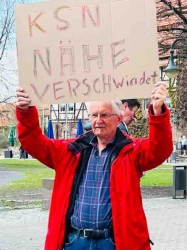 KSN
NÄHE
VERSCHwindet